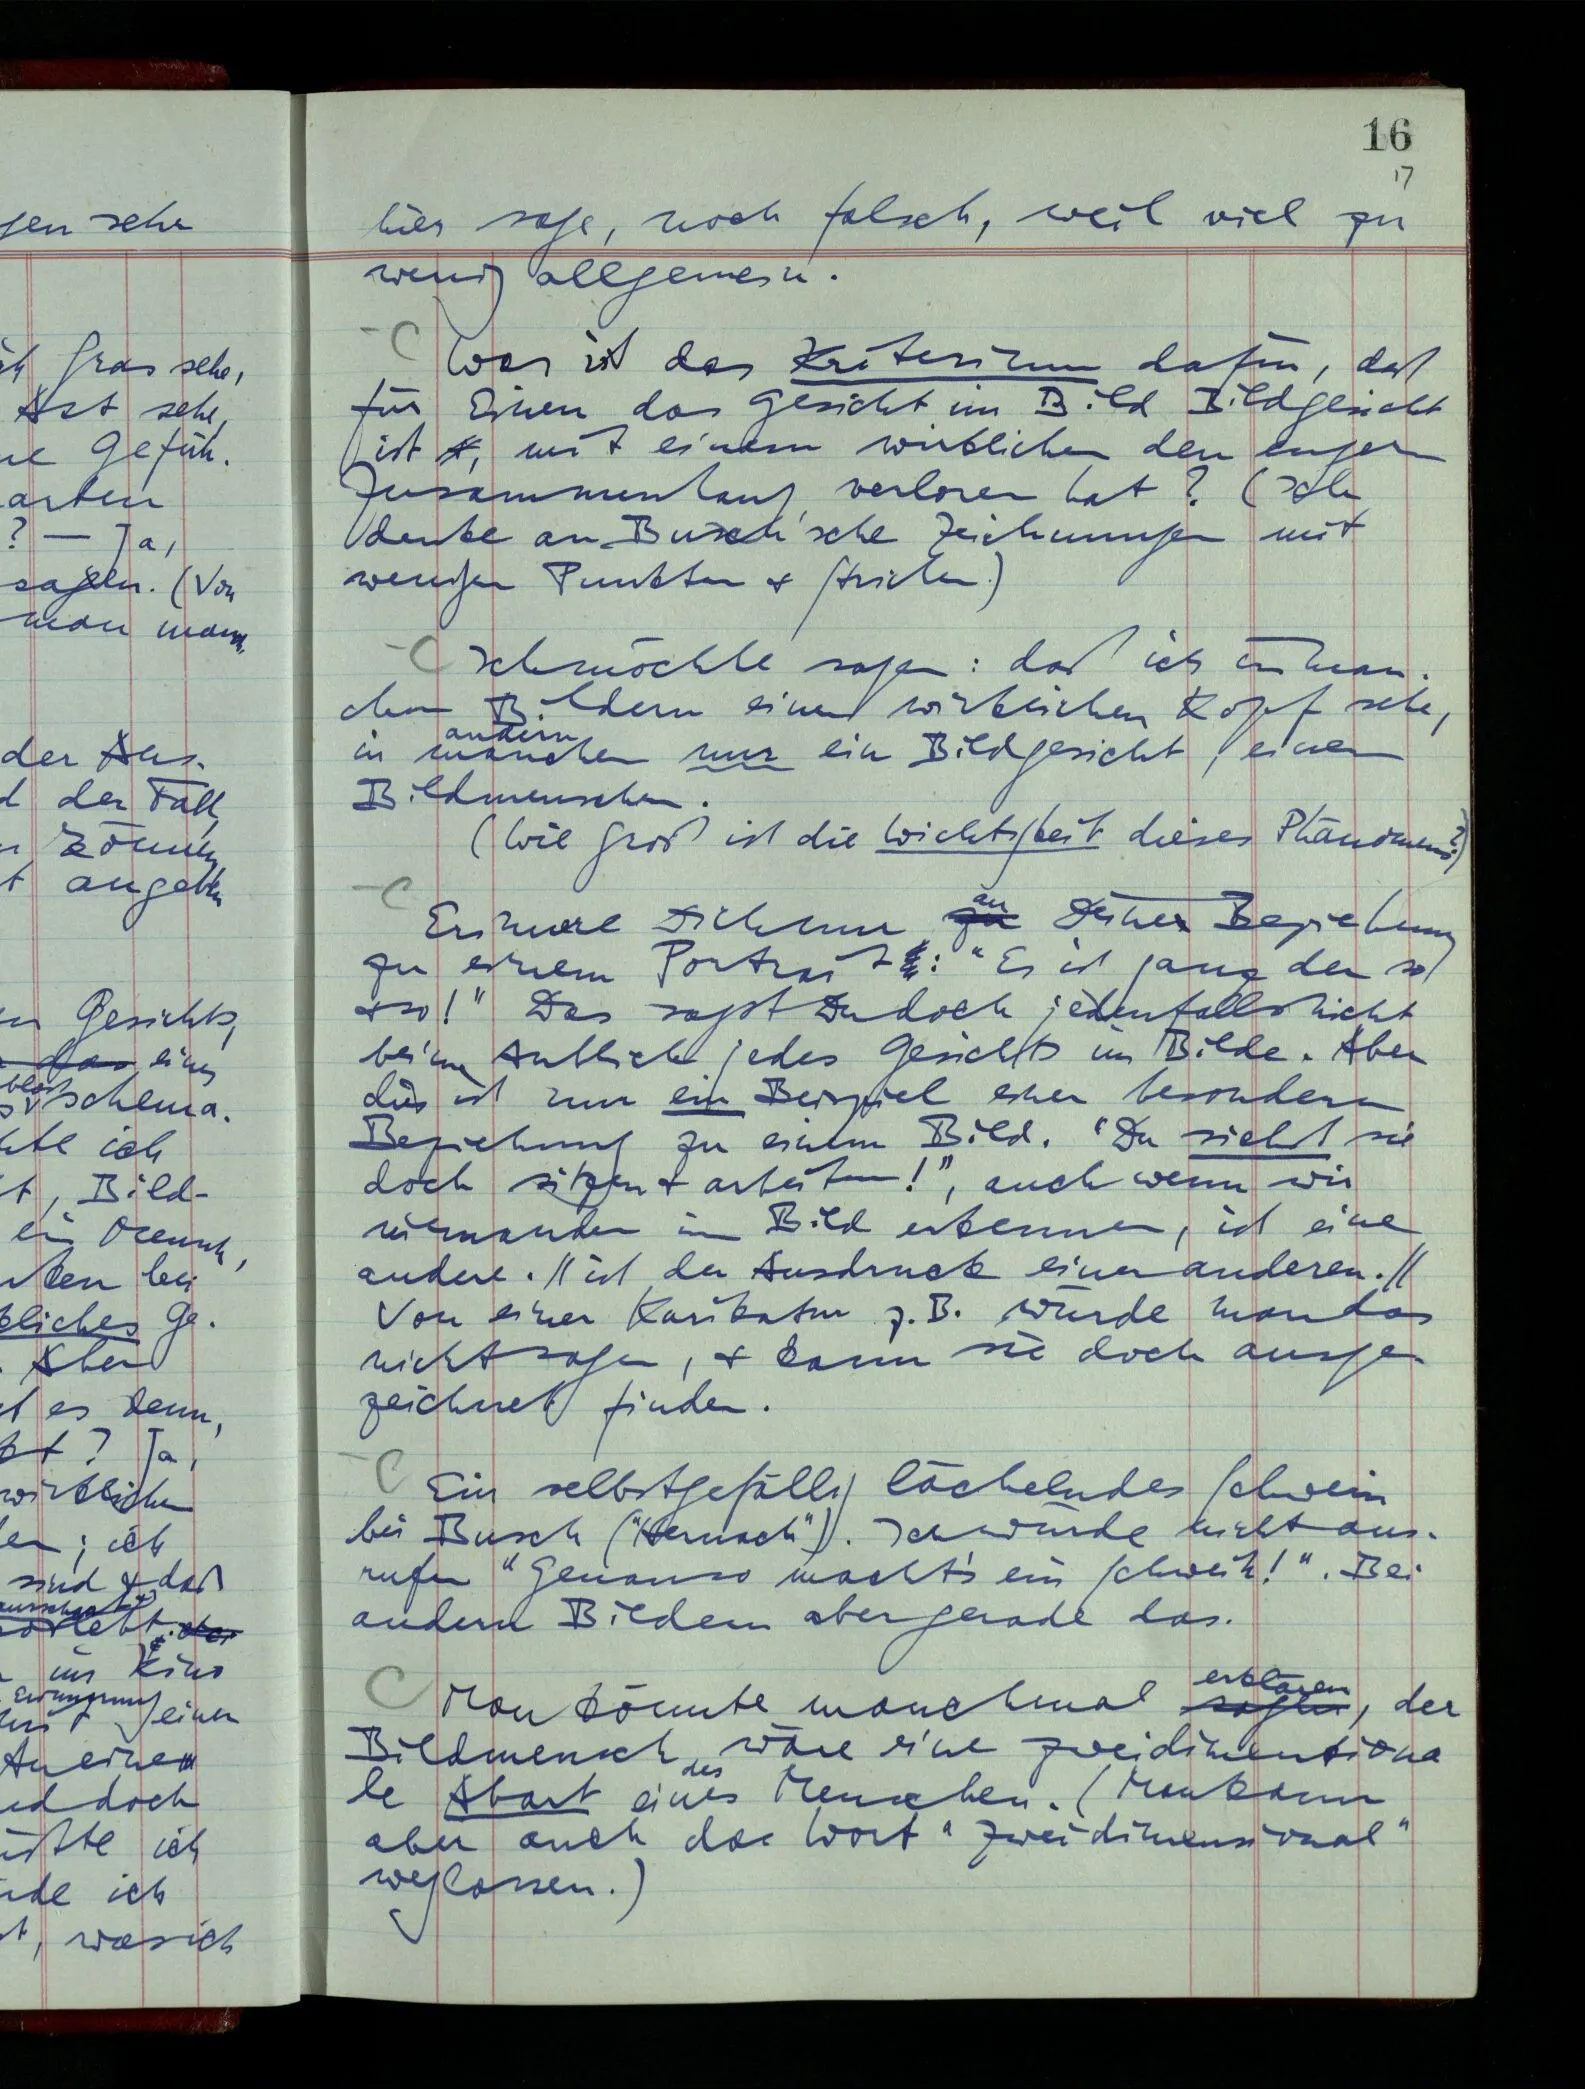 16
17
hier sage, noch falsch, weil viel zu
wenig allgemein.
– C Was ist das Kriterium dafür, daß
für Einen das Gesicht im Bild Bildgesicht
ist, mit einem wirklichen den engern
Zusammenhang verloren hat? (Ich
denke an Busch'sche Zeichnungen mit
wenigen Punkten & Strichen.)
– C Ich möchte sagen: daß ich in man-
chen Bildern einen wirklichen Kopf sehe,
andern
in manchen nur ein Bildgesicht, einen
Bildmenschen.
(Wie groß ist die Wichtigkeit dieses Phänomens?)
– C
an
Erinnere Dich nur zu Deiner Beziehung
zu einem Portrait: "Es ist ganz der so
& so!" Das sagst Du doch jedenfalls nicht
beim Anblick jedes Gesichts im Bilde. Aber
dies ist nur ein Beispiel einer besondern
Beziehung zu einem Bild. "Du siehst sie
doch sitzen & arbeiten!", auch wenn wir
niemanden im Bild erkennen, ist eine
andere. // ist der Ausdruck einer anderen. //
Von einer Karikatur z.B. würde man das
nicht sagen, & kann sie doch ausge-
zeichnet finden.
– C Ein selbstgefällig lächelndes Schwein
bei Busch. Ich würde nicht aus-
rufen "Genau so macht's ein Schwein!". Bei
andern Bildern aber gerade das.
erklären
C Man könnte manchmal sagen, der
Bildmensch wäre eine zweidimensiona
des
le Abart eines Menschen. (Man kann
aber auch das Wort "zweidimensional"
weglassen.)
gen sehe
ich Gras sehe,
Ast sehe,
Gefüh.
arten
? — Ja,
sageln. (Von
man
der Aus-
der Fall,
können
angeben
Gesichts,
das eines
blos
Schema.
ich
, Bild-
ein Mensch,
bei
Ge-
Aber
es denn,
? Ja,
wirklichen
; ich
sind & daß
ins Kino
Erinnerung
einer
An einen
und doch
ich
ich
, was ich